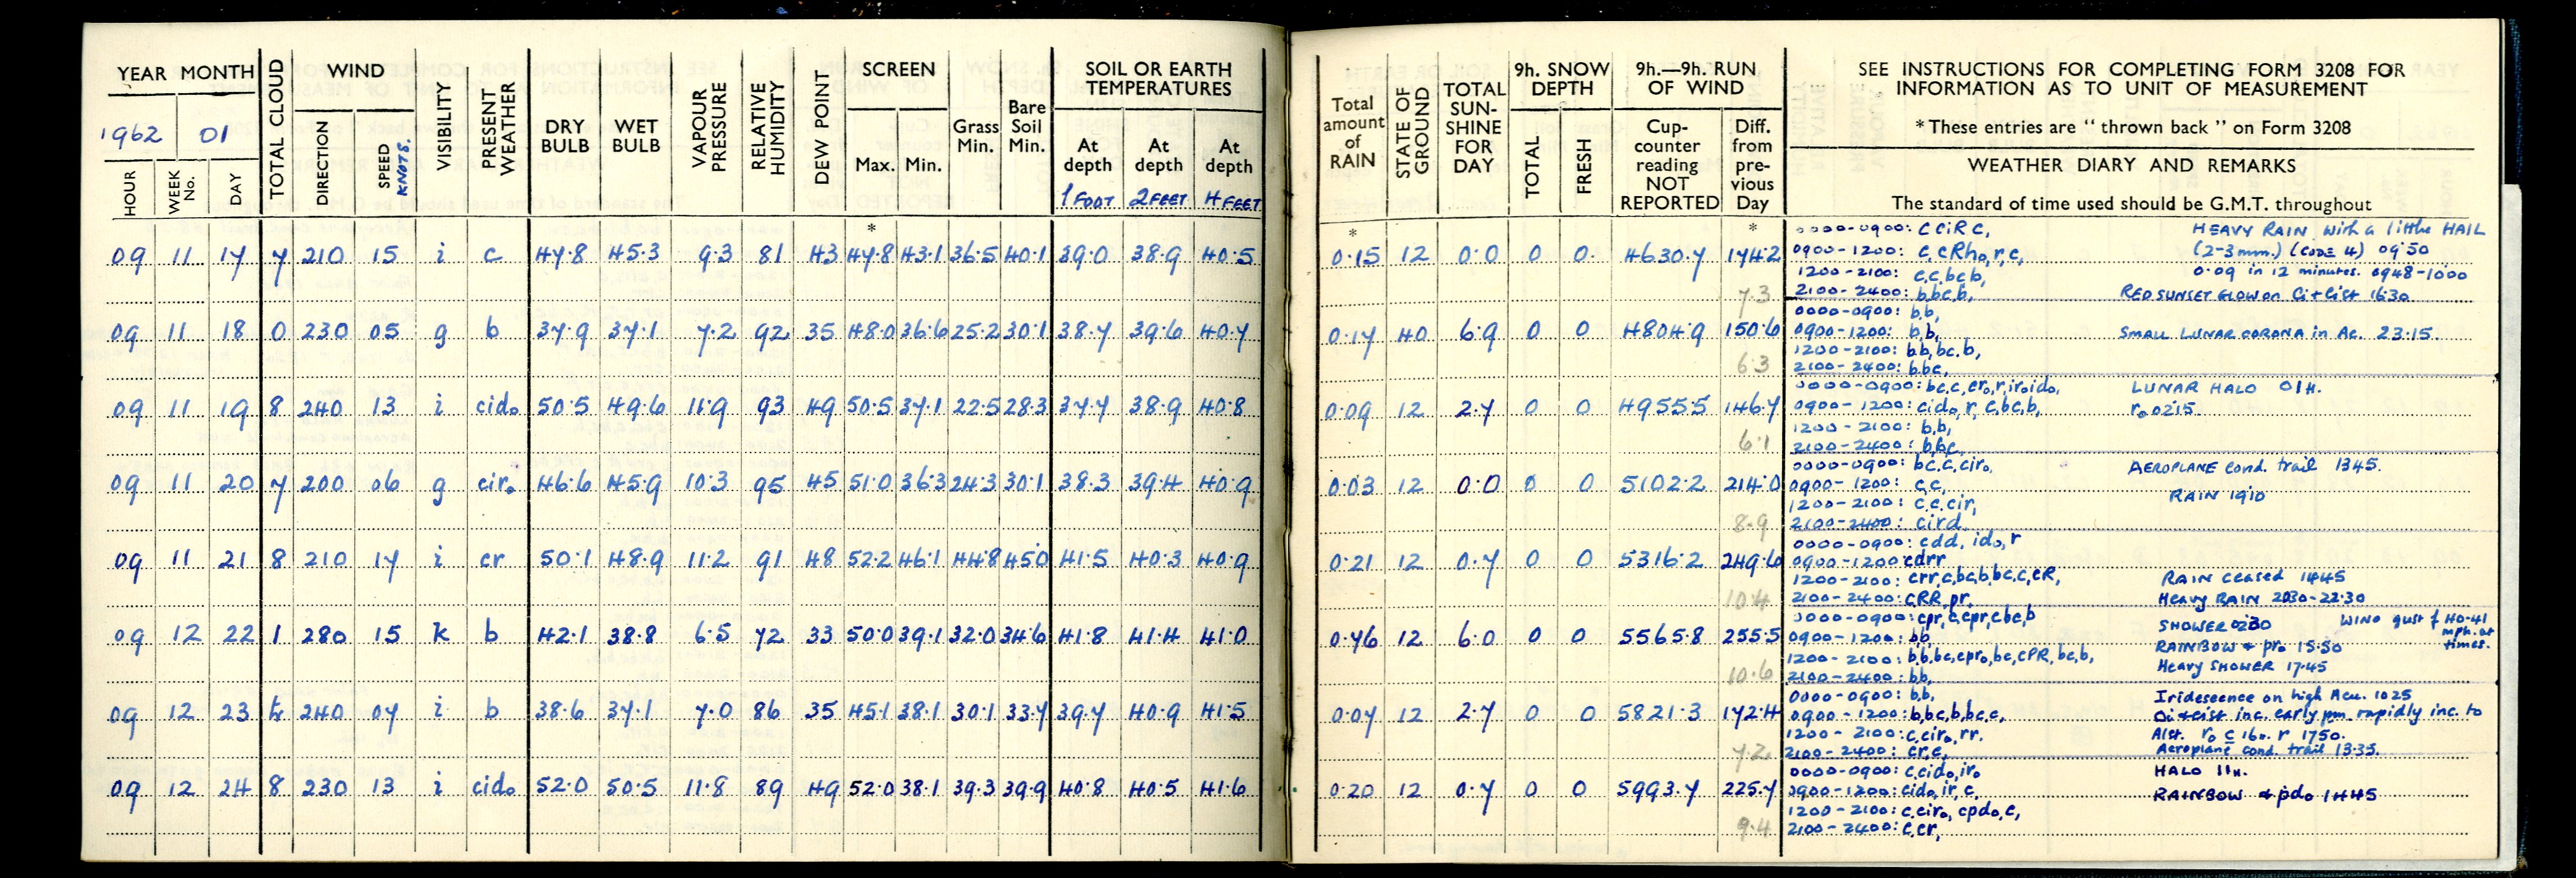 YEAR MONTH TOTAL CLOUD WIND VISIBILITY PRESENT WEATHER DRY BULB WET BULB VAPOUR PRESSURE RELATIVE HUMIDITY DEW POINT SCREEN Grass Min. Bare Soil Min. SOIL OR EARTH TEMPERATURES
1962 01 DIRECTION SPEED KNOTS. Max. Min. At depth At depth At depth
HOUR WEEK No. DAY 1 FOOT 2 FEET 4 FEET
*
09 11 17 7 210 15 i c 47.8 45.3 9.3 81 43 47.8 43.1 36.5 40.1 39.0 38.9 40.5
09 11 18 0 230 05 g b 37.9 37.1 7.2 92 35 48.0 36.6 25.2 30.1 38.7 39.6 40.7
09 11 19 8 240 13 i cido 50.5 49.6 11.9 93 49 50.5 37.1 22.5 28.3 37.7 38.9 40.8
09 11 20 7 200 06 g ciro 46.6 45.9 10.3 95 45 51.0 36.3 24.3 30.1 38.3 39.4 40.9
09 11 21 8 210 17 i cr 50.1 48.9 11.2 91 48 52.2 46.1 44.8 45.0 41.5 40.3 40.9
09 12 22 1 280 15 k b 42.1 38.8 6.5 72 33 50.0 39.1 32.0 34.6 41.8 41.4 41.0
09 12 23 240 07 i b 38.6 37.1 7.0 86 35 45.1 38.1 30.1 33.7 39.7 40.9 41.5
09 12 24 8 230 13 i cido 52.0 50.5 11.8 89 49 52.0 38.1 39.3 39.9 40.8 40.5 41.6
Total amount of RAIN STATE OF GROUND TOTAL SUN-SHINE FOR DAY 9h. SNOW DEPTH 9h.—9h. RUN OF WIND
TOTAL FRESH Cup-counter reading NOT REPORTED Diff. from pre-vious Day
SEE INSTRUCTIONS FOR COMPLETING FORM 3208 FOR
INFORMATION AS TO UNIT OF MEASUREMENT
*These entries are "thrown back" on Form 3208
WEATHER DIARY AND REMARKS
The standard of time used should be G.M.T. throughout
* *
0000-0900: c ciR c, HEAVY RAIN with a little HAIL
0.15 12 0.0 0 0. 4630.7 174.2 0900-1200: c, cRho, r, c, (2-3mm.) (CODE 4) 0950
1200-2100: c, c, bc, b, 0.09 in 12 minutes. 0948-1000
7.3 2100-2400: b, bc, b, RED SUNSET GLOW on Ci+Cist 1630
0000-0900: b, b,
0.17 40 6.9 0 0 4804.9 150.6 0900-1200: b, b, SMALL LUNAR CORONA in Ac. 23.15.
1200-2100: b, b, bc, b,
6.3 2100-2400: b, bc,
0000-0900: bc, c, cro, r, iro, ido, LUNAR HALO 01H.
0.09 12 2.7 0 0 4955.5 146.7 0900-1200: cido, r, c, bc, b, ro 0215.
1200-2100: b, b,
6.1 2100-2400: b, bc,
0000-0900: bc, c, ciro, AEROPLANE cond. trail 1345.
0.03 12 0.0 0 0 5102.2 214.0 0900-1200: c, c, RAIN 1910
1200-2100: c, c, cir,
8.9 2100-2400: cird
0000-0900: cdd, ido, r
0.21 12 0.7 0 0 5316.2 249.6 0900-1200 cdrr
1200-2100: crr, c, bc, b, bc, c, cR, RAIN ceased 1445
10.4 2100-2400: cRR, pr, Heavy RAIN 2030-22.30
0000-0900: cpr, c, cpr, cbc, b SHOWER 0230 WIND gust of 40-41 mph. at times.
0.76 12 6.0 0 0 5565.8 255.5 0900-1200: bb, RAINBOW + pro 15.50
1200-2100: b, b, bc, cpro, bc, cPR, bc, b, Heavy SHOWER 17.45
10.6 2100-2400: b, b,
0000-0900: b, b, Iridescence on high Acu. 1025
0.07 12 2.7 0 0 5821.3 172.4 0900-1200: b, bc, b, bc, c, Ci+Cist inc. early pm. rapidly inc. to
1200-2100: c, ciro, rr. Alst. ro c 16H. r 1750.
7.2 2100-2400: cr, c, Aeroplane cond. trail 13.35.
0000-0900: c, cido, iro HALO 11H.
0.20 12 0.7 0 0 5993.7 225.7 0900-1200: cido, ir, c, RAINBOW + pdo 1445
1200-2100: c, ciro, cpdo, c,
9.4 2100-2400: c, cr,